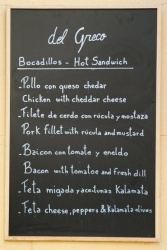 del Greco
Bocadillos - Hot Sandwich
- Pollo con queso chedar
Chicken with cheddar cheese
- Filete de cerdo con rúcola y mostaza
Pork fillet with rúcola and mustard
- Bacon con tomate y eneldo
Bacon with tomatoe and fresh dill
- Feta migada y aceitunas Kalamata
- Feta cheese, peppers & Kalamata olives